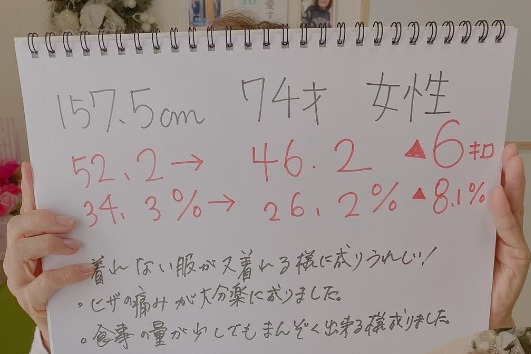 157.5cm 74才 女性
52.2→ 46.2 ▲6キロ
34.3%→ 26.2% ▲8.1%
・着れない服が又着れる様に成りうれしい!
・ヒザの痛みが大分楽に成りました。
・食事の量が少しでもまんぞく出来る様成りました。